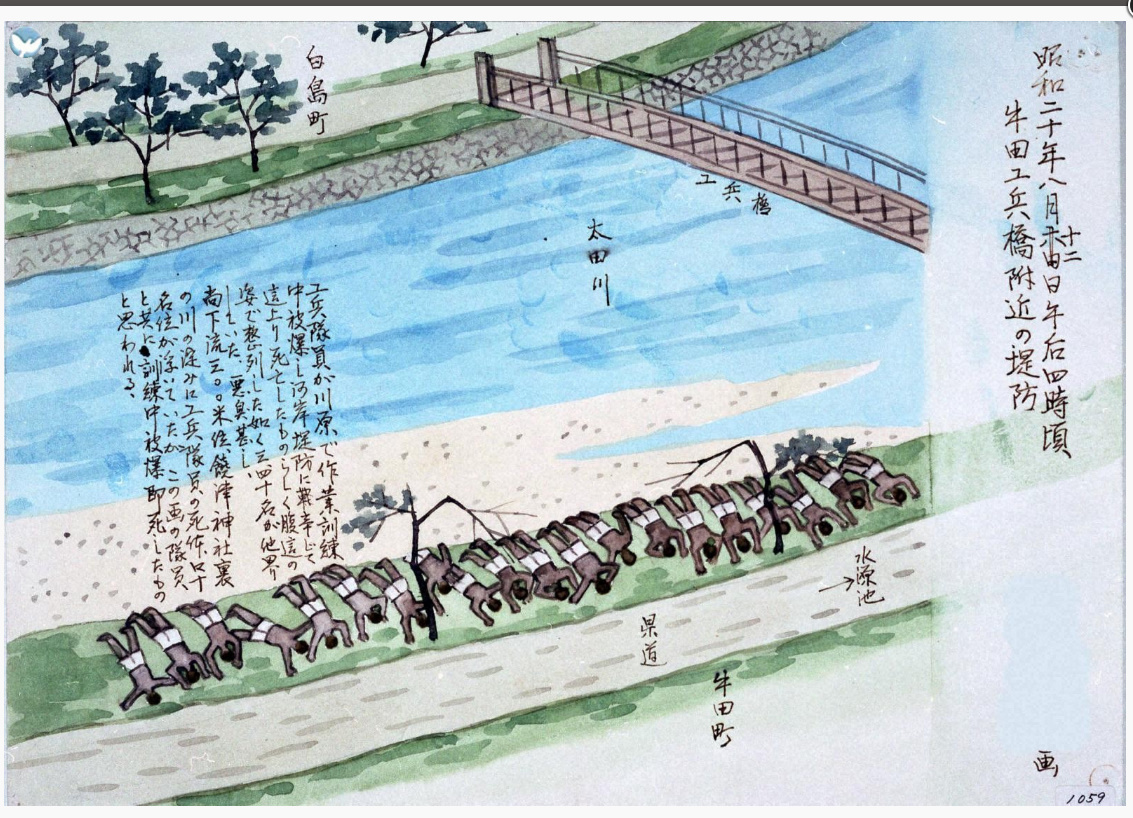 昭和二十年八月十二日午后四時頃
牛田工兵橋附近の堤防
白島町
工兵橋
太田川
工兵隊員が川原で作業訓練
中被爆し河岸堤防に
這上り死亡したものらしく腹這の
姿で整列した如く三四十名が他界
していた、悪臭甚し、
尚下流三〇〇米位、饒津神社裏
の川の淀みに工兵隊員の死体四十
名位が浮いていたが この画の隊員
と共に訓練中被爆即死したもの
と思われる、
水源池
県道
牛田町
画
1059